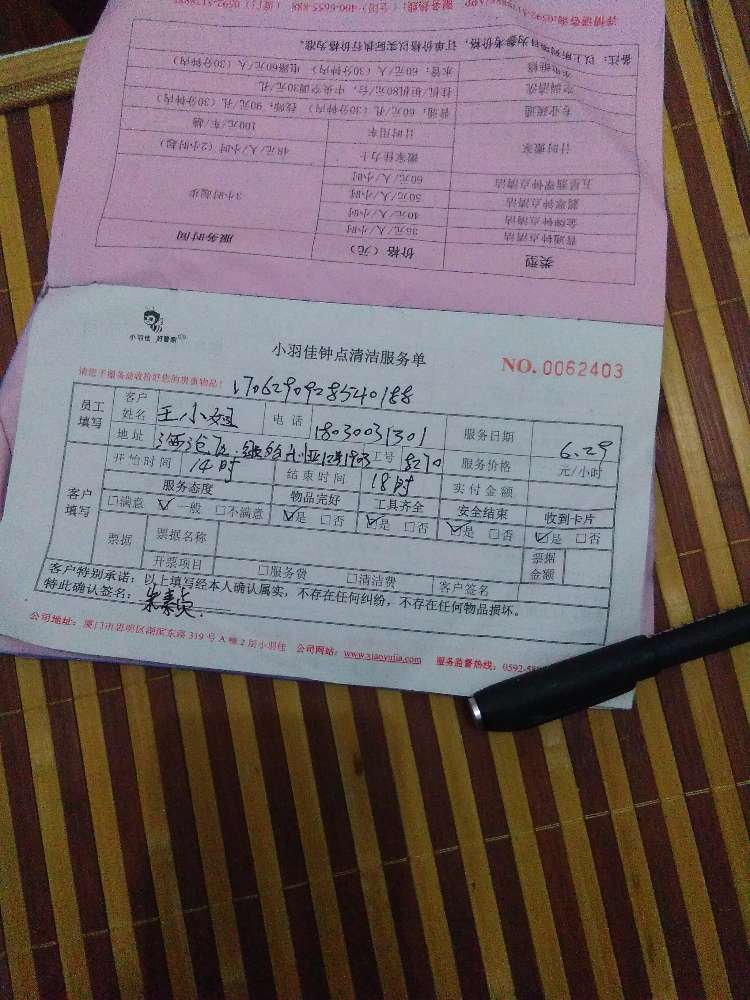 详情请咨询:0592-
服务热线:
400-6655-888
备注:以上所列项目为参考价格,订单价格以实际执行价格为准。
类型 价格(元) 服务时间
普通钟点清洁 35元/人/小时 3小时起步
金牌钟点清洁 40元/人/小时
翡翠钟点清洁 50元/人/小时
五星翡翠钟点清洁 60元/人/小时
计时搬家 搬家佳力士 48元/人/小时(2小时起)
计时用车 100元/车/趟
专业疏通 普通:60元/孔(30分钟内) 技师:90元/孔(30分钟内)
空调清洗 挂机/柜机80元/台,中央空调30元/孔
水电维修 水管:60元/人(30分钟内) 电路60元/人(30分钟内)
小羽佳 好管家
小羽佳钟点清洁服务单
NO. 0062403
请您于服务前收拾好您的贵重物品!
1706290928540188
员工填写 客户姓名 王小姐 电话 18030031301 服务日期 6.29
地址 工号 8270 服务价格 元/小时
开始时间 14时 结束时间 18时 实付金额
客户填写 服务态度 物品完好 工具齐全 安全结束 收到卡片
□满意 ☑一般 □不满意 ☑是 □否 ☑是 □否 ☑是 □否 ☑是 □否
票据 票据名称 票据金额
开票项目 □服务费 □清洁费 客户签名
客户特别承诺:以上填写经本人确认属实,不存在任何纠纷,不存在任何物品损坏。
特此确认签名:
公司地址:厦门市思明区湖滨东路319号A幢2层小羽佳 公司网站:www.xiaoyujia.com 服务监督热线:0592-